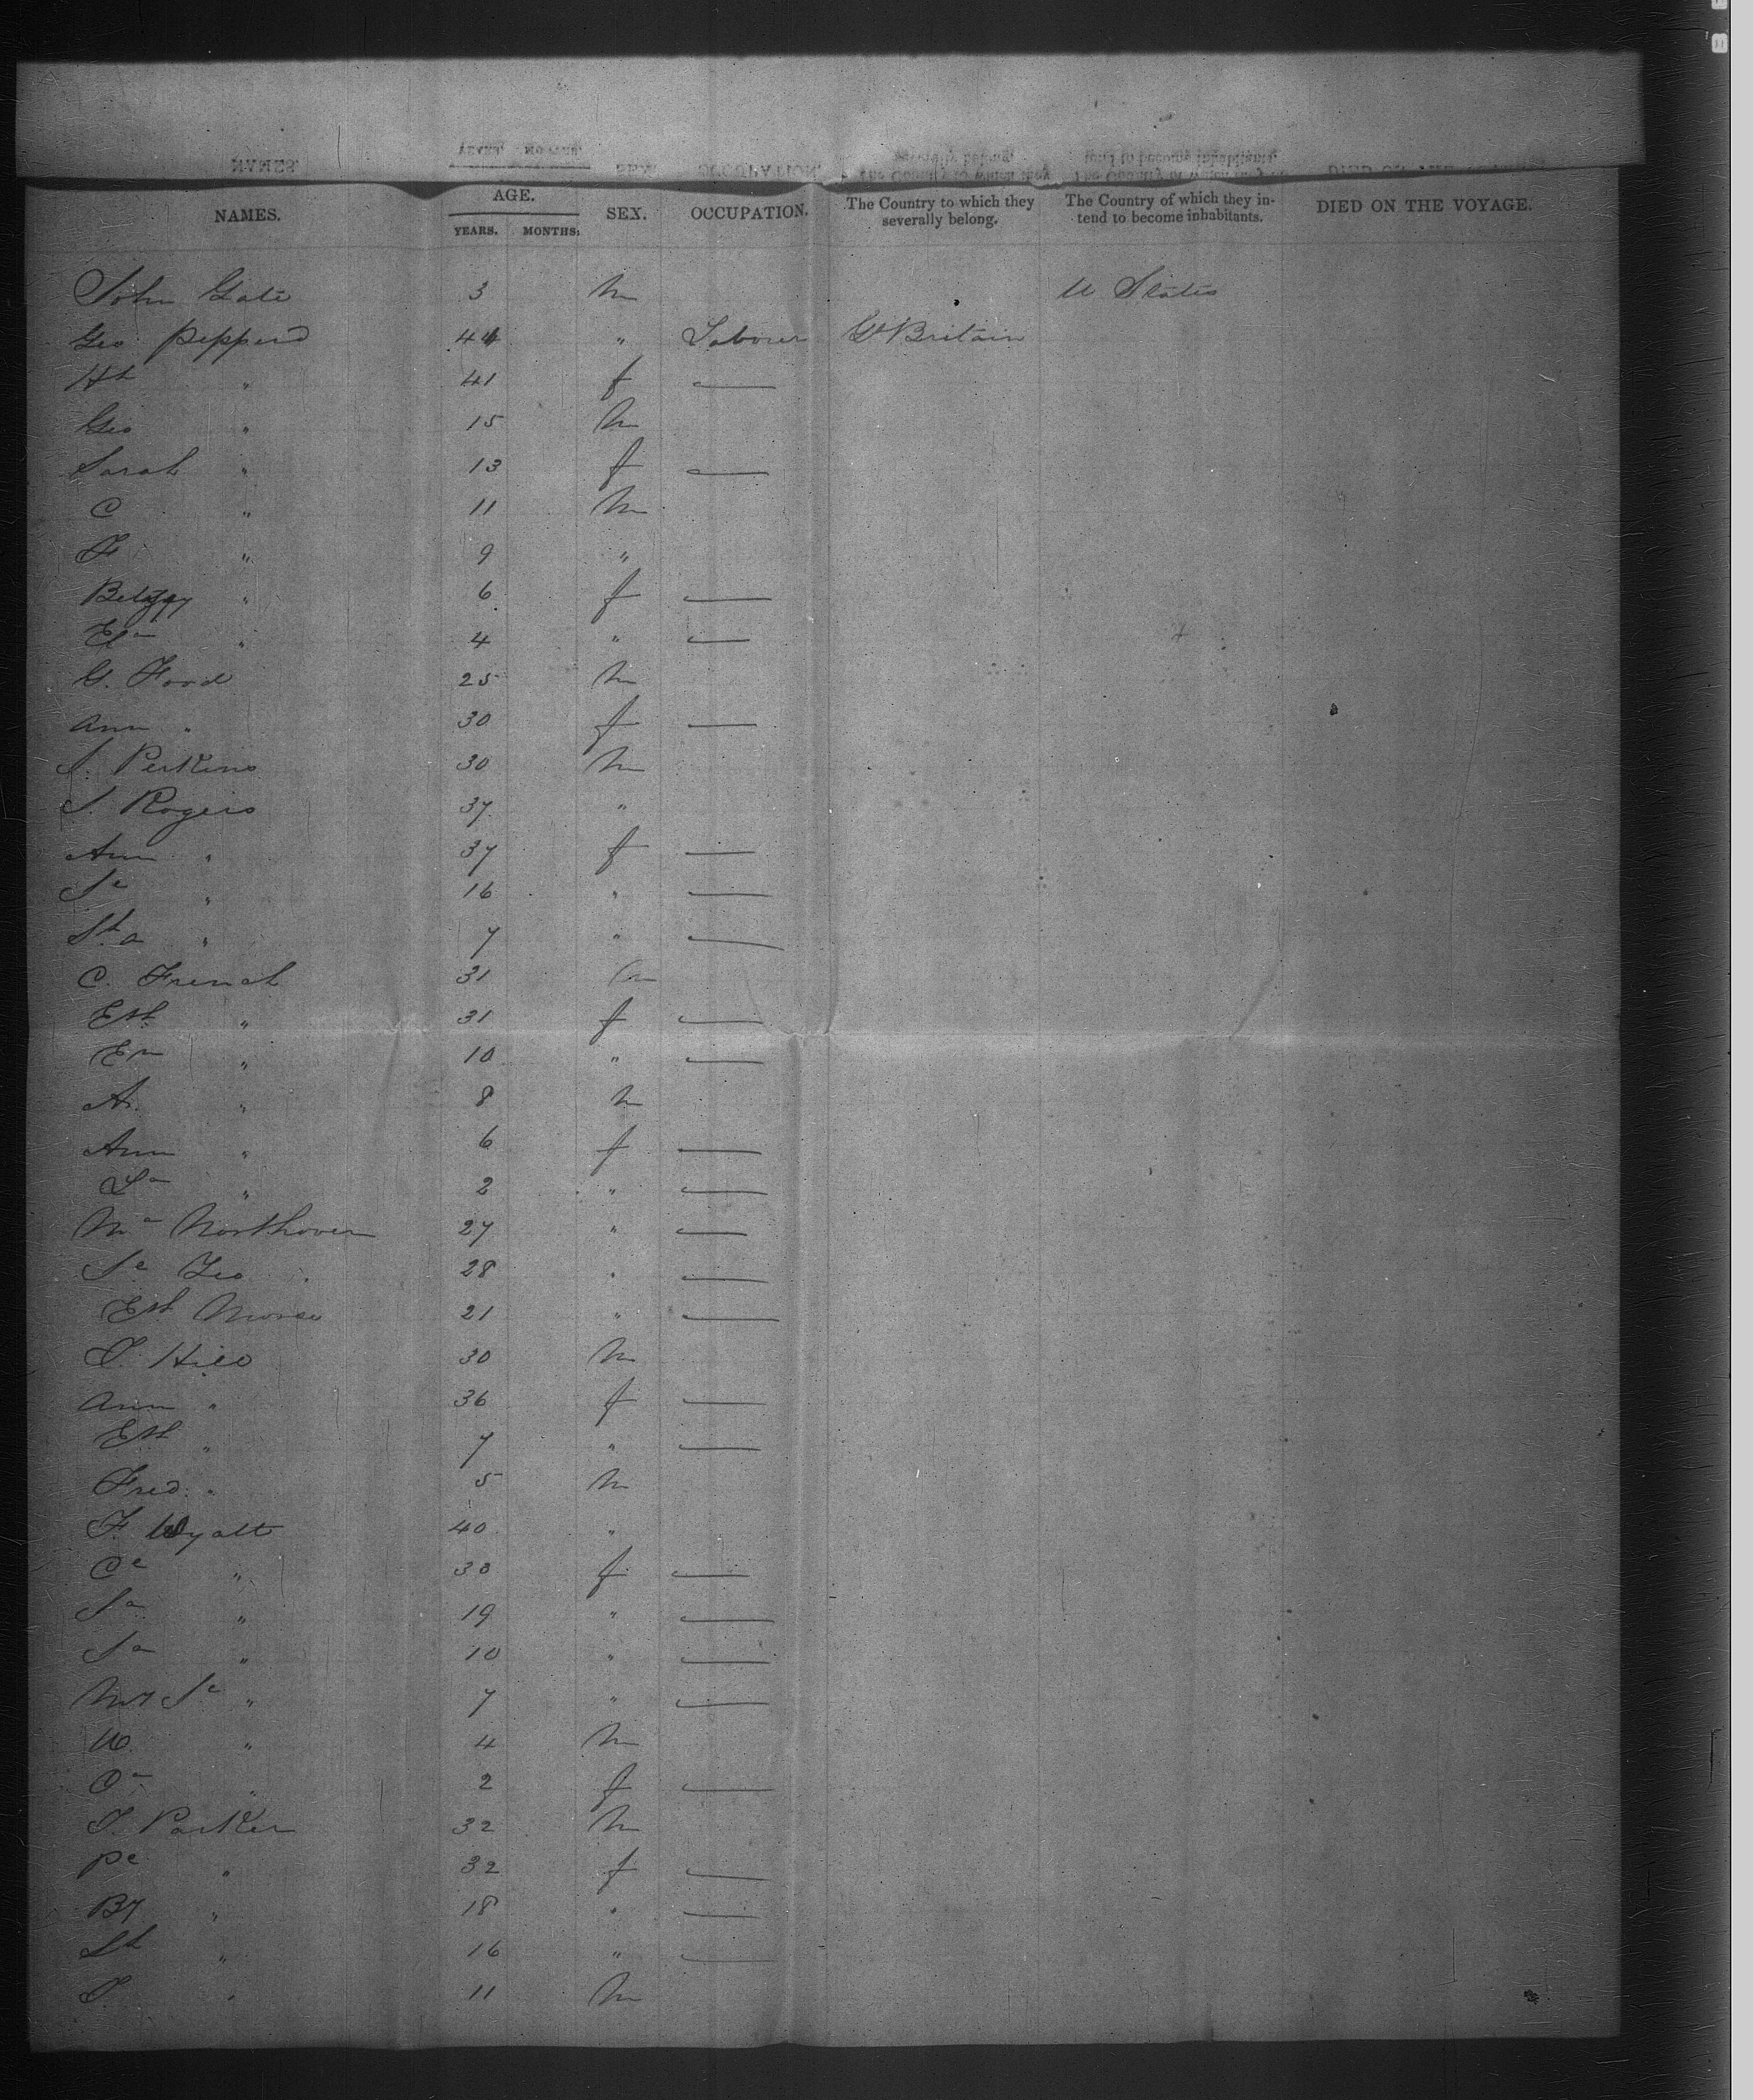 NAMES. AGE. YEARS. MONTHS. SEX. OCCUPATION. The Country to which they severally belong. The Country of which they intend to become inhabitants. DIED ON THE VOYAGE.
John Gate 3 m U States
Geo Pepperd 44 " Labourer Gt Britain
Hh " 41 f —
Geo " 15 m
Sarah " 13 f —
C " 11 m
F " 9 "
Betsy " 6 f —
Ea " 4 " —
G. Foord 25 m
Ann " 30 f —
J. Perkins 30 m
J. Rogers 37 "
Ann " 37 f —
Je " 16 " —
Sha " 7 " —
C. French 31 m
Eth " 31 f —
Em " 10 " —
A. " 8 m
Ann " 6 f —
La " 2 " —
Ma Northover 27 " —
Se Geo 28 " —
Eth Morse 21 " —
T. Hill 30 m
Ann " 36 f —
Eth " 7 " —
Fred. " 5 m
F. Wyatt 40 "
Ce " 30 f —
Sa " 19 " —
Ja " 10 " —
My Je " 7 " —
W. " 4 m
Oa " 2 f —
T. Parker 32 m
Pe " 32 f —
By " 18 " —
Sh " 16 " —
T " 11 m